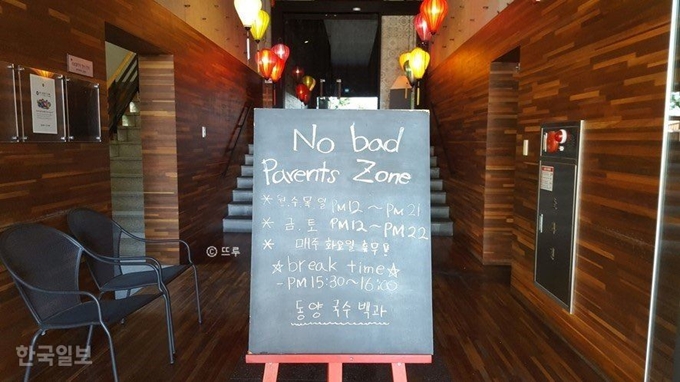 No bad
Parents Zone
* 월수목일 PM12 ~ PM 21
* 금.토 PM12 ~ PM22
* 매주 화요일 휴무!
☆break time☆
- PM 15:30~16:00
동양 국수 백과
© 뜨루
한국일보